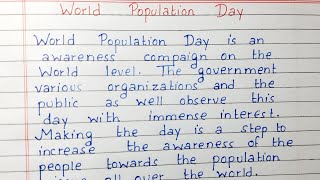 World Population Day
World Population Day is an
awareness campaign on the
World level. The government
various organizations and the
public as well observe this
day with immense interest.
Making the day is a step to
increase the awareness of the
people towards the population
all over the world.